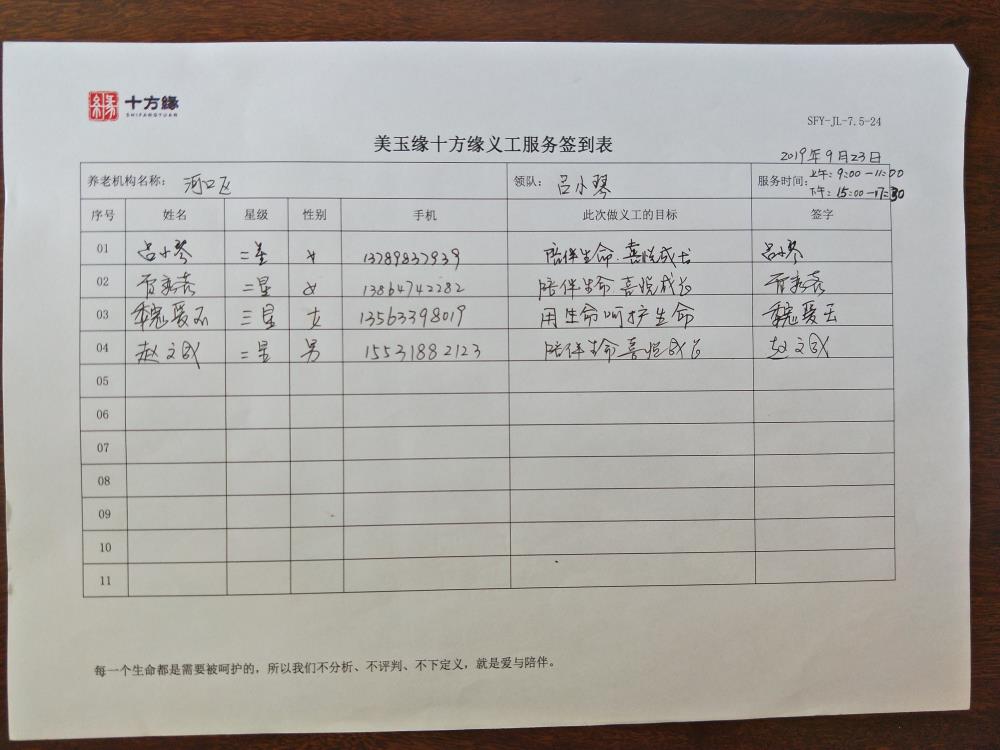 十方缘
SHIFANGYUAN
SFY-JL-7.5-24
美玉缘十方缘义工服务签到表
2019年9月23日
养老机构名称： 河口区 领队： 吕小琴 服务时间： 上午：9:00-11:00
下午：15:00-17:30
序号 姓名 星级 性别 手机 此次做义工的目标 签字
01 吕小琴 二星 女 13789837939 陪伴生命.喜悦成长 吕小琴
02 二星 女 13864742282 陪伴生命.喜悦成长
03 魏爱玉 三星 女 13563398019 用生命呵护生命 魏爱玉
04 赵文成 二星 男 15531882123 陪伴生命喜悦成长 赵文成
05
06
07
08
09
10
11
每一个生命都是需要被呵护的，所以我们不分析、不评判、不下定义，就是爱与陪伴。